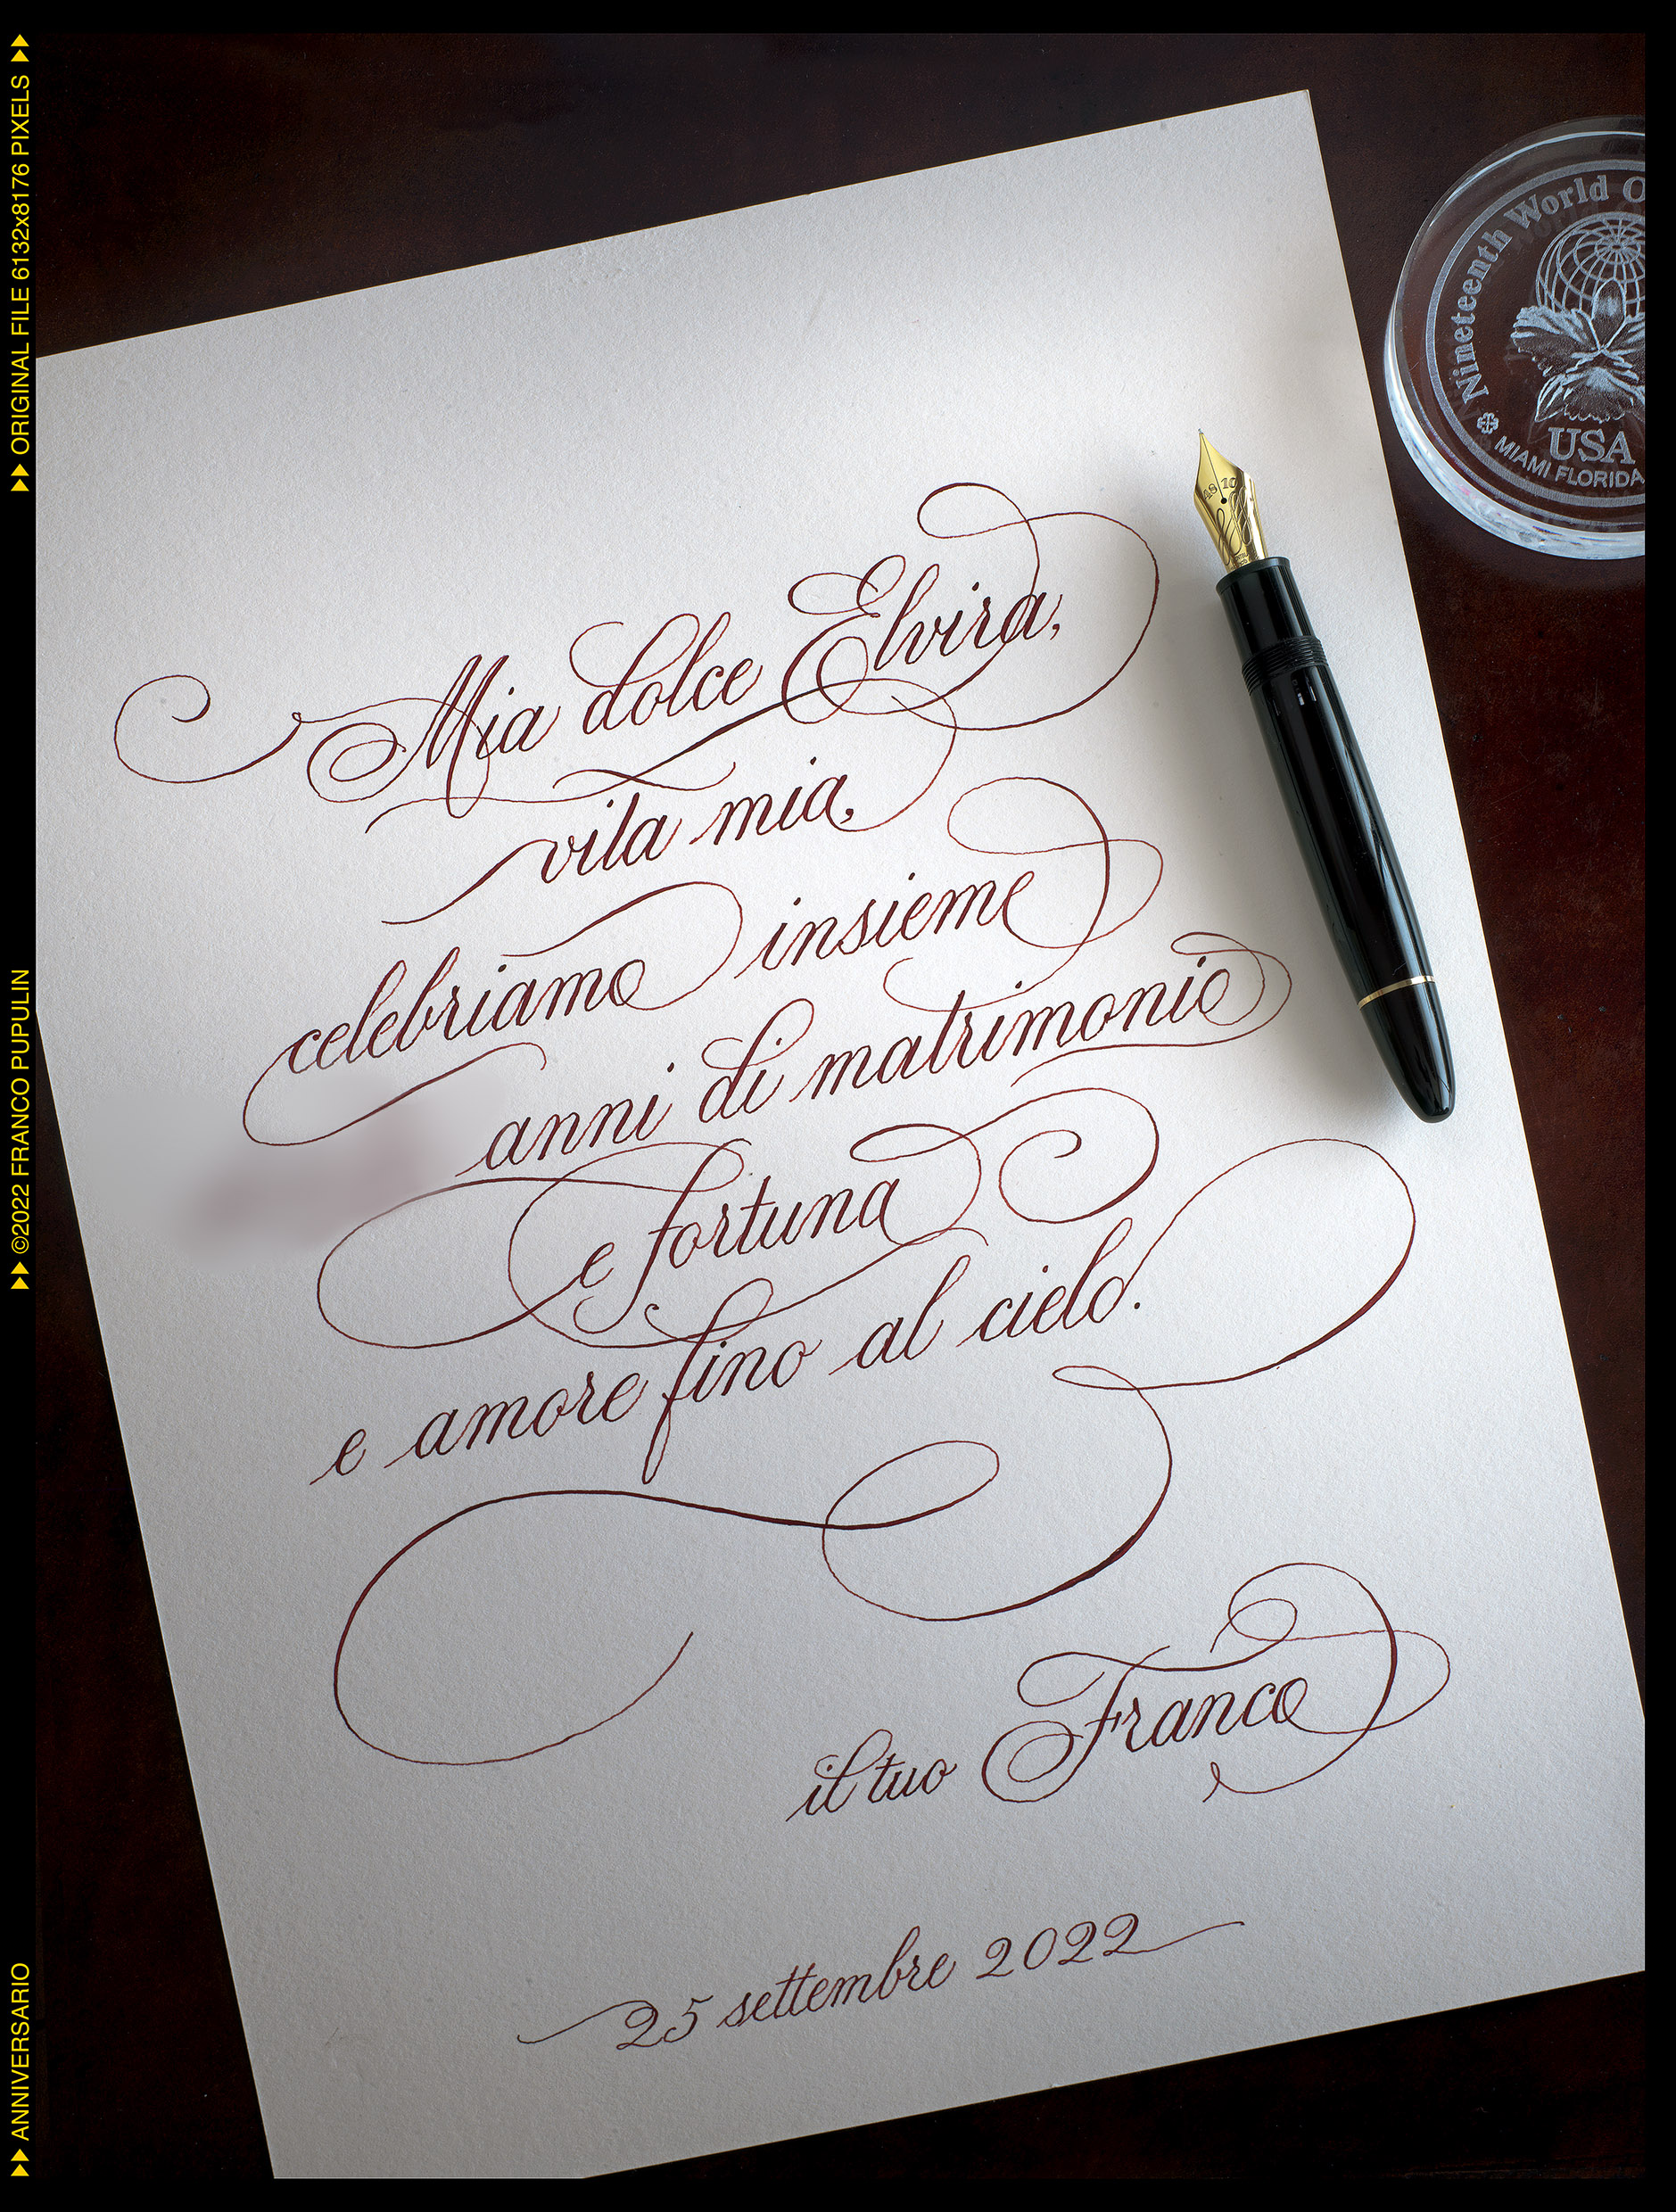 Mia dolce Elvira,
vita mia,
celebriamo insieme
anni di matrimonio
e fortuna
e amore fino al cielo.
il tuo Franco
25 settembre 2022
Nineteenth World
USA
MIAMI FLORIDA
▶▶ ORIGINAL FILE 6132x8176 PIXELS ▶▶
▶▶ ©2022 FRANCO PUPULIN
▶▶ ANNIVERSARIO ▶▶